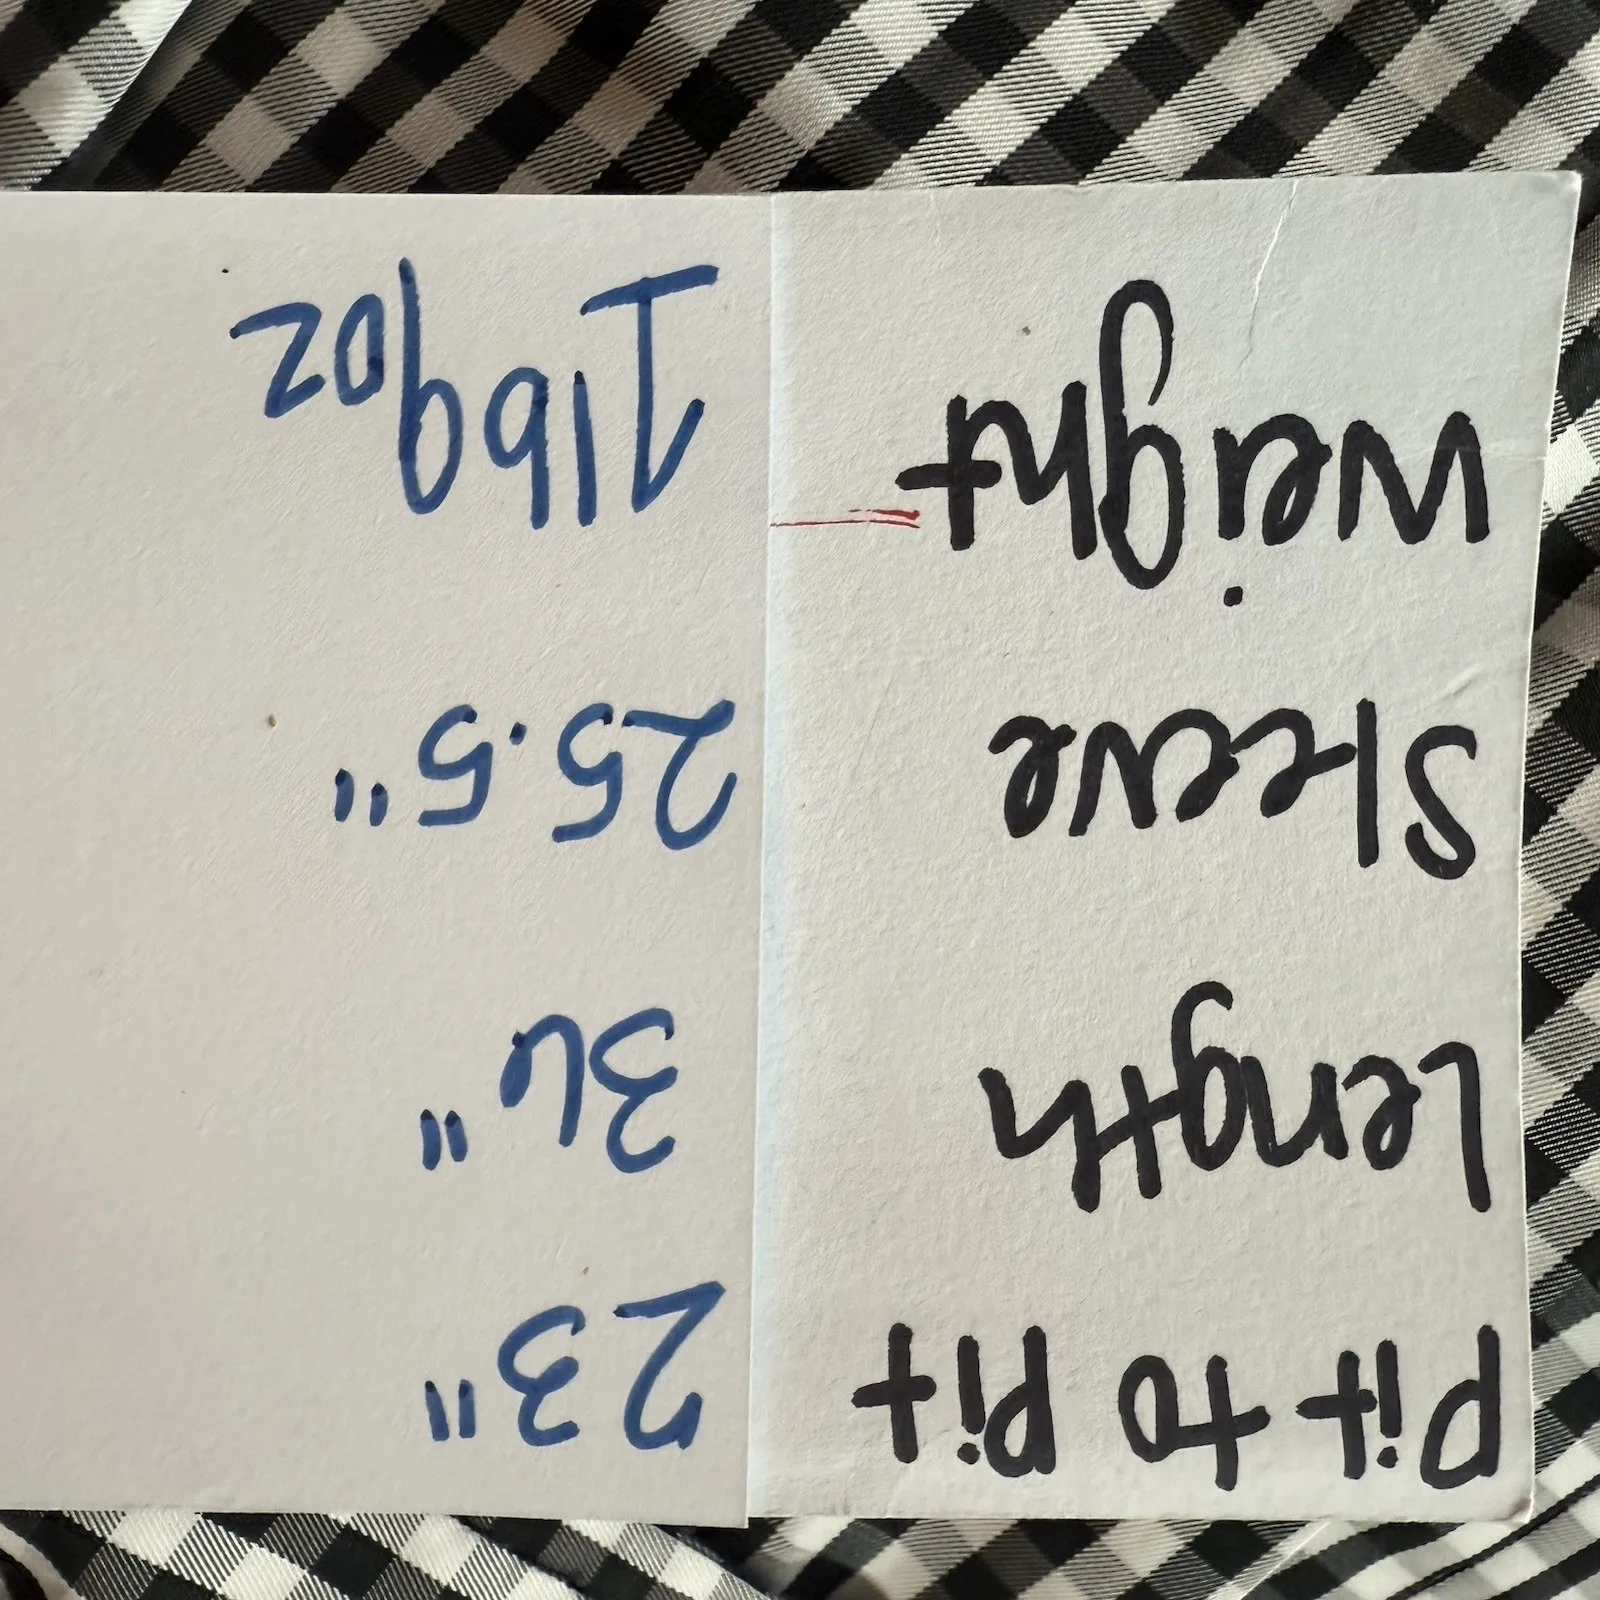 Pit to Pit 23"
Length
Sleeve 25.5"
Weight 1lb 9oz